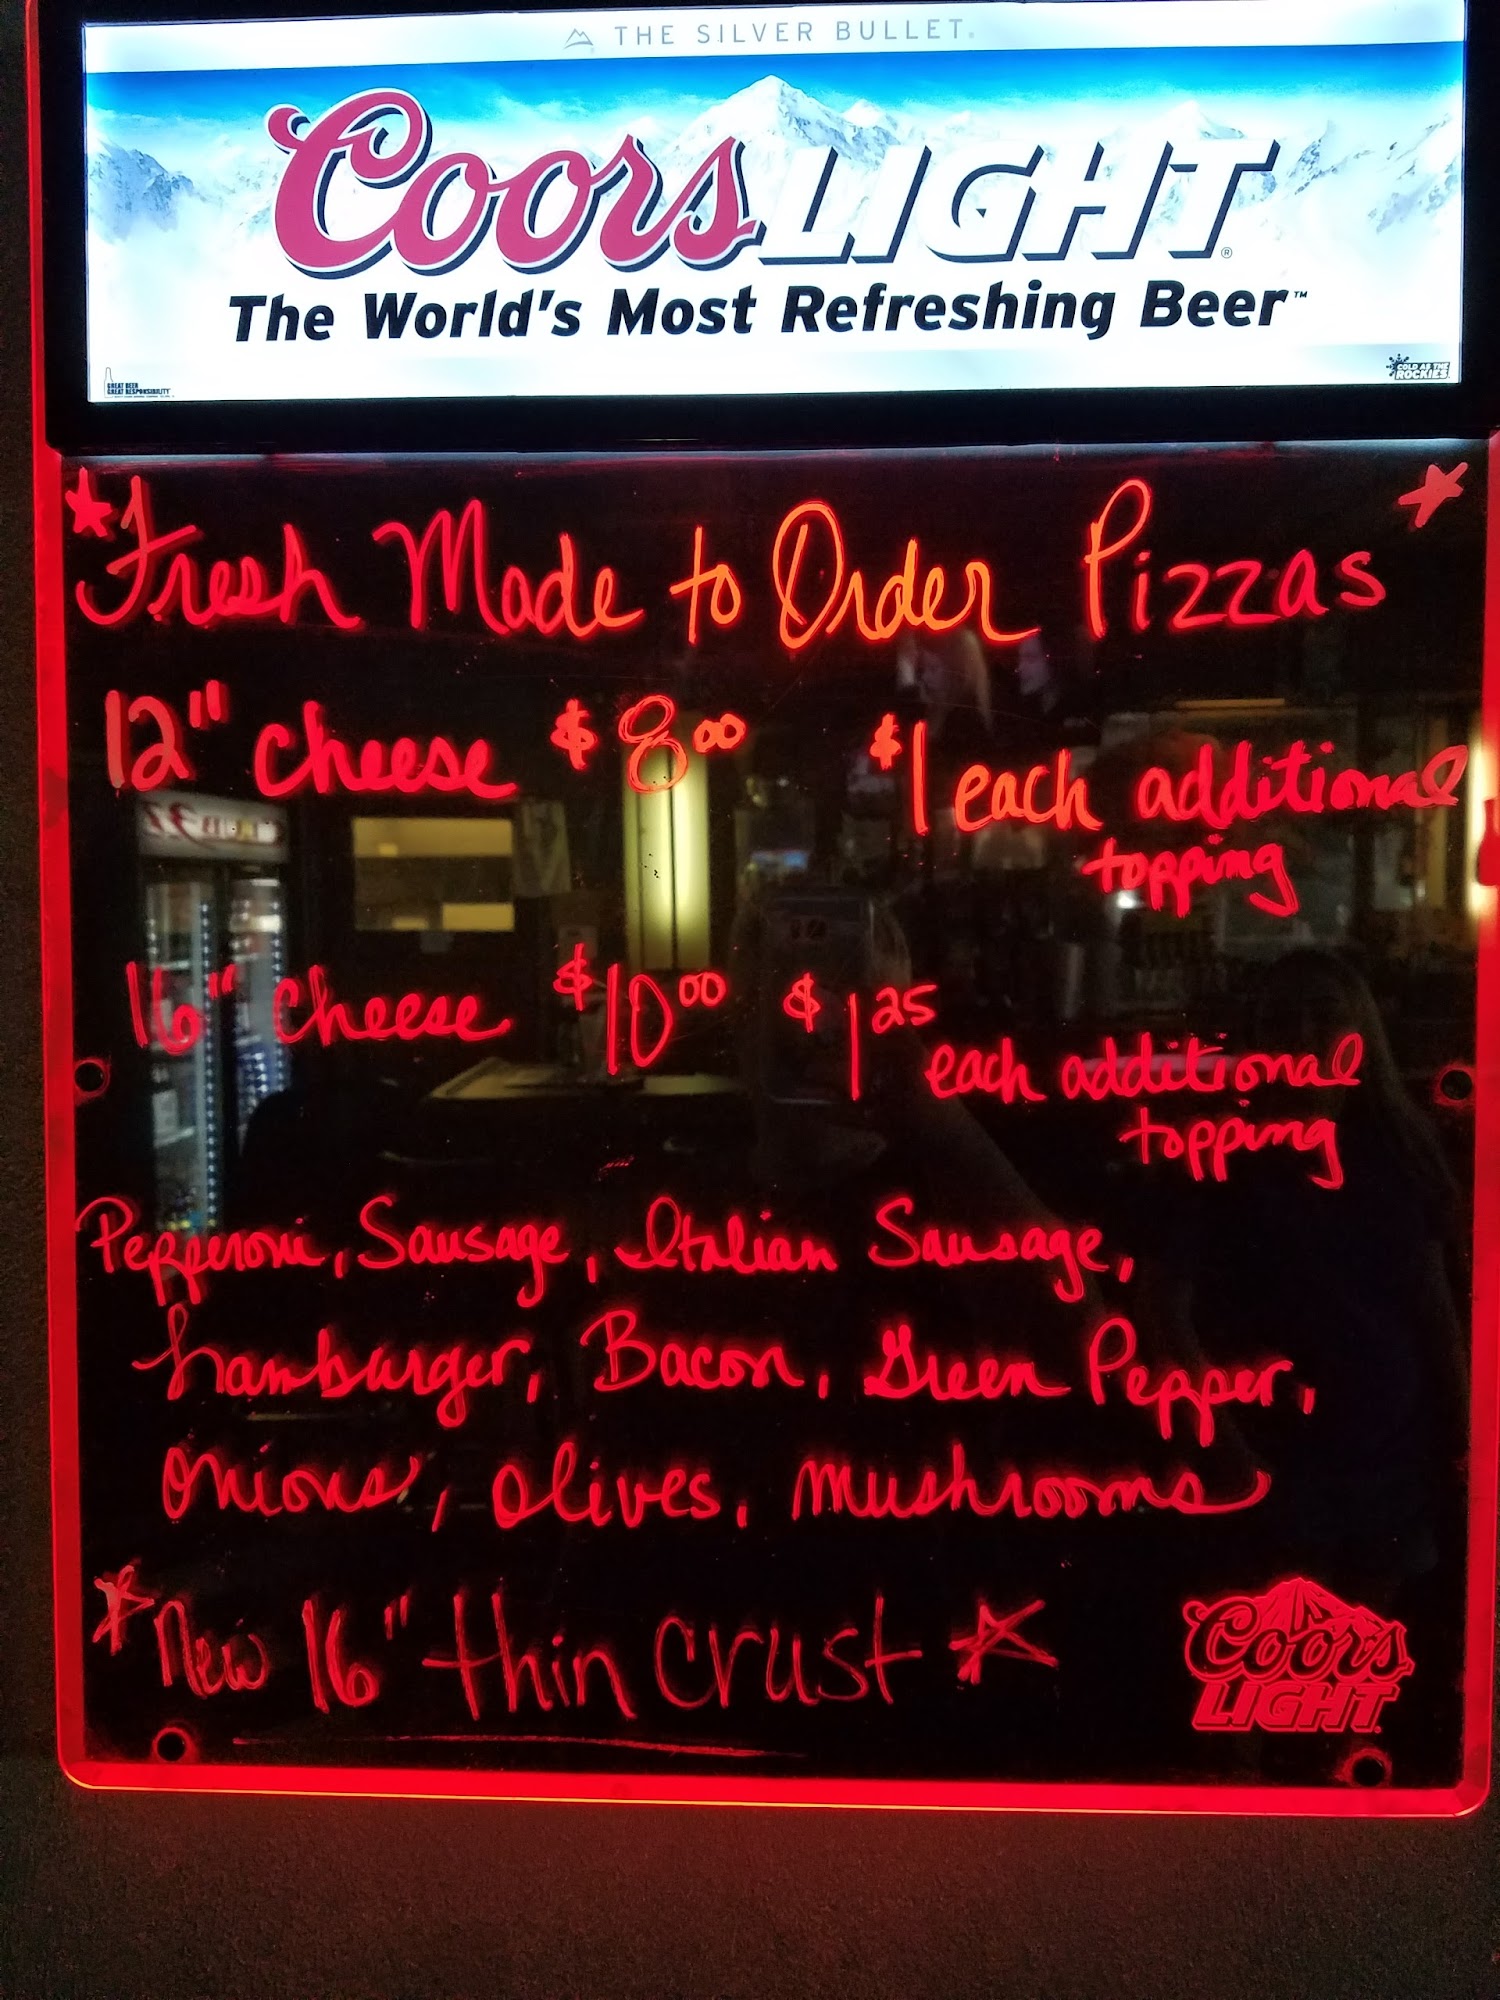 THE SILVER BULLET.
Coors LIGHT®
The World's Most Refreshing Beer™
GREAT BEER
GREAT RESPONSIBILITY
COLD AS THE
ROCKIES
Fresh Made to Order Pizzas
12" cheese $8.00 $1 each additional
topping
16" cheese $10.00 $1.25 each additional
topping
Pepperoni, Sausage, Italian Sausage,
hamburger, Bacon, Green Pepper,
onions, olives, mushrooms
New 16" thin crust
Coors
LIGHT